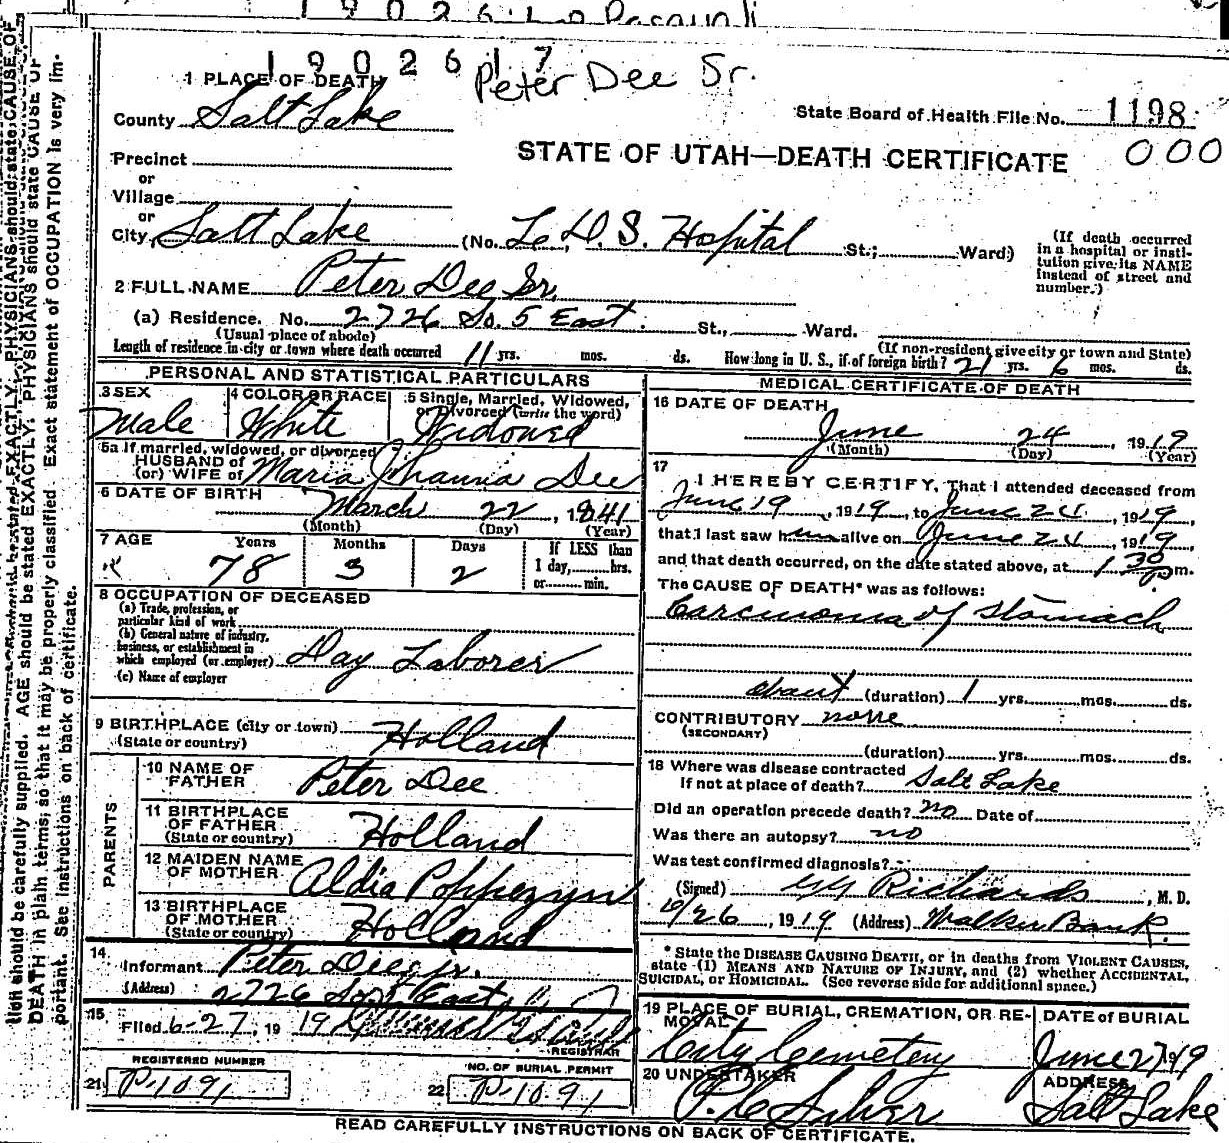 1 9 0 2 6 1 7
Peter Dee Sr.
1 PLACE OF DEATH
County Salt Lake
State Board of Health File No. 1198
Precinct
STATE OF UTAH—DEATH CERTIFICATE 000
or
Village
or
City Salt Lake (No. L. D. S. Hospital St.; Ward)
(If death occurred in a hospital or institution give its NAME instead of street and number.)
2 FULL NAME Peter Dee Sr.
(a) Residence. No. 2726 So. 5 East. St., Ward.
(Usual place of abode) (If non-resident give city or town and State)
Length of residence in city or town where death occurred 11 yrs. mos. ds. How long in U. S., if of foreign birth? 21 yrs. 6 mos. ds.
PERSONAL AND STATISTICAL PARTICULARS
3 SEX Male
4 COLOR OR RACE White
5 Single, Married, Widowed, or Divorced (write the word) Widowed
5a If married, widowed, or divorced
HUSBAND of
(or) WIFE of Maria Johanna Dee
6 DATE OF BIRTH
March 22, 1841
(Month) (Day) (Year)
7 AGE Years Months Days If LESS than
78 3 2 1 day, hrs.
or min.
8 OCCUPATION OF DECEASED
(a) Trade, profession, or
particular kind of work
(b) General nature of industry,
business, or establishment in
which employed (or employer) Day Laborer
(c) Name of employer
9 BIRTHPLACE (city or town)
(State or country) Holland
PARENTS
10 NAME OF
FATHER Peter Dee
11 BIRTHPLACE
OF FATHER
(State or country) Holland
12 MAIDEN NAME
OF MOTHER Aldia Poppezyn
13 BIRTHPLACE
OF MOTHER
(State or country) Holland
14
Informant Peter Dee jr.
(Address) 2726 So 5t East
15
Filed 6-27, 19 19
REGISTRAR
REGISTERED NUMBER
21 P-1091
NO. OF BURIAL PERMIT
22 P-1091
MEDICAL CERTIFICATE OF DEATH
16 DATE OF DEATH
June 24, 1919
(Month) (Day) (Year)
17
I HEREBY CERTIFY, That I attended deceased from
June 19, 1919, to June 24, 1919,
that I last saw him alive on June 24, 1919,
and that death occurred, on the date stated above, at 1 30 pm.
The CAUSE OF DEATH* was as follows:
Carcinoma of Stomach
about (duration) 1 yrs. mos. ds.
CONTRIBUTORY none
(SECONDARY)
(duration) yrs. mos. ds.
18 Where was disease contracted
If not at place of death? Salt Lake
Did an operation precede death? no Date of
Was there an autopsy? no
What test confirmed diagnosis?
(Signed) Richards, M. D.
6/26, 1919 (Address) Walker Bank.
* State the DISEASE CAUSING DEATH, or in deaths from VIOLENT CAUSES,
state (1) MEANS AND NATURE OF INJURY, and (2) whether ACCIDENTAL,
SUICIDAL, or HOMICIDAL. (See reverse side for additional space.)
19 PLACE OF BURIAL, CREMATION, OR REMOVAL
City Cemetery
DATE OF BURIAL
June 27 1919
20 UNDERTAKER
ADDRESS
Salt Lake
READ CAREFULLY INSTRUCTIONS ON BACK OF CERTIFICATE.
tion should be carefully supplied. AGE should be stated EXACTLY. PHYSICIANS should state CAUSE OF
DEATH in plain terms, so that it may be properly classified. Exact statement of OCCUPATION is very im-
portant. See instructions on back of certificate.